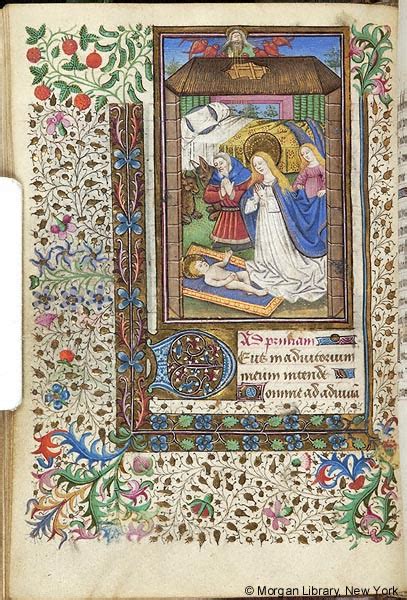 Ad primam
Deus in adiutorium
meum intende
Domine ad adiuua
© Morgan Library, New York